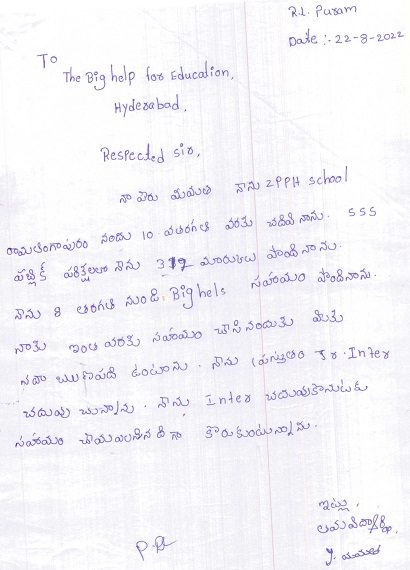 R.L. Puram
Date :- 22-8-2022
To
The Big help for Education,
Hyderabad,
Respected sir,
నా పేరు మమత నేను ZPPH School
రామలింగాపురం నందు 10 వతరగతి వరకు చదివి నాను. SSS
పబ్లిక్ పరిక్షలలో నేను మారుకులు పొంది నాను.
నేను 8 తరగతి నుండి Big hels సహాయం పొందినాను.
నాకు ఇంత వరకు సహాయం చేసి నందుకు మీకు
సదా ఋణపడి ఉంటాను. నేను ప్రస్తుతం Jr. Inter
చదువు చున్నాను. నేను Inter చదువుకొనుటకు
సహాయం చేయవలసిన దిగా కోరుకుంటున్నాను.
ఇట్లు,
Y. మమత